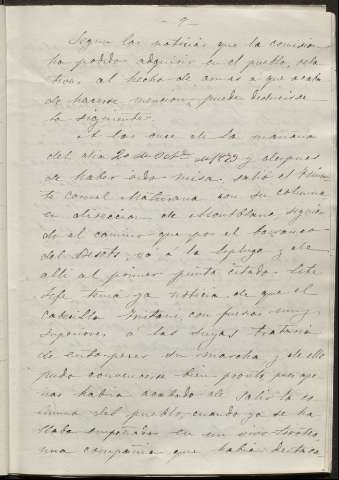 - 9 -
Segun las noticias que la comision
ha podido adquirir en el pueblo, rela
tivas al hecho de armas a que acaba
de hacerse mencion, puede deducirse
lo siguiente:
A las once de la mañana
del dia 20 de Octbre de 1873 y despues
de haber oido misa, salió el Tenien
te coronel Maturana con su columna
en direccion de Montblanc, siguien
do el camino que por el barranco
del va á la Espluga y de
alli al primer punto citado. Este
Jefe tenia ya noticia de que el
cabecilla con fuerzas muy
superiores á las suyas trataria
de entorpecer su marcha y de ello
pudo convencerse bien pronto pues ape
nas habia acabado de salir la co
lumna del pueblo, cuando ya se ha
llaba empeñada en un vivo tiroteo
una compañia que habia destaca